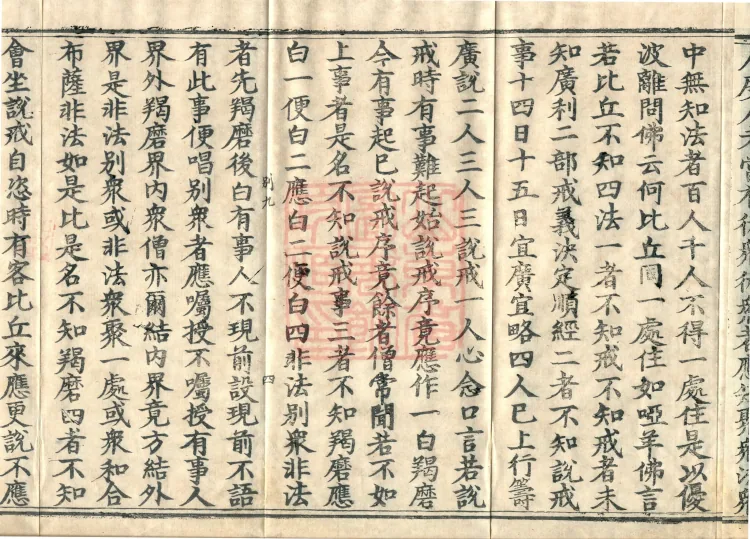 中無知法者百人千人不得一處住是以優
波離問佛云何比丘同一處住如啞羊佛言
若比丘不知四法一者不知戒不知戒者未
知廣利二部戒義決定順經二者不知說戒
事十四日十五日宜廣宜略四人已上行籌
廣說二人三人三說戒一人心念口言若說
戒時有事難起始說戒序竟應作一白羯磨
今有事起已說戒序竟餘者僧常聞若不如
上事者是名不知說戒事三者不知羯磨應
白一便白二應白二便白四非法別衆非法
別九 四
者先羯磨後白有事人不現前設現前不語
有此事便唱別衆者應囑授不囑授有事人
界外羯磨界内衆僧亦爾結内界竟方結外
界是非法別衆或非法衆聚一處或衆和合
布薩非法如是比是名不知羯磨四者不知
會坐說戒自恣時有客比丘來應更說不應